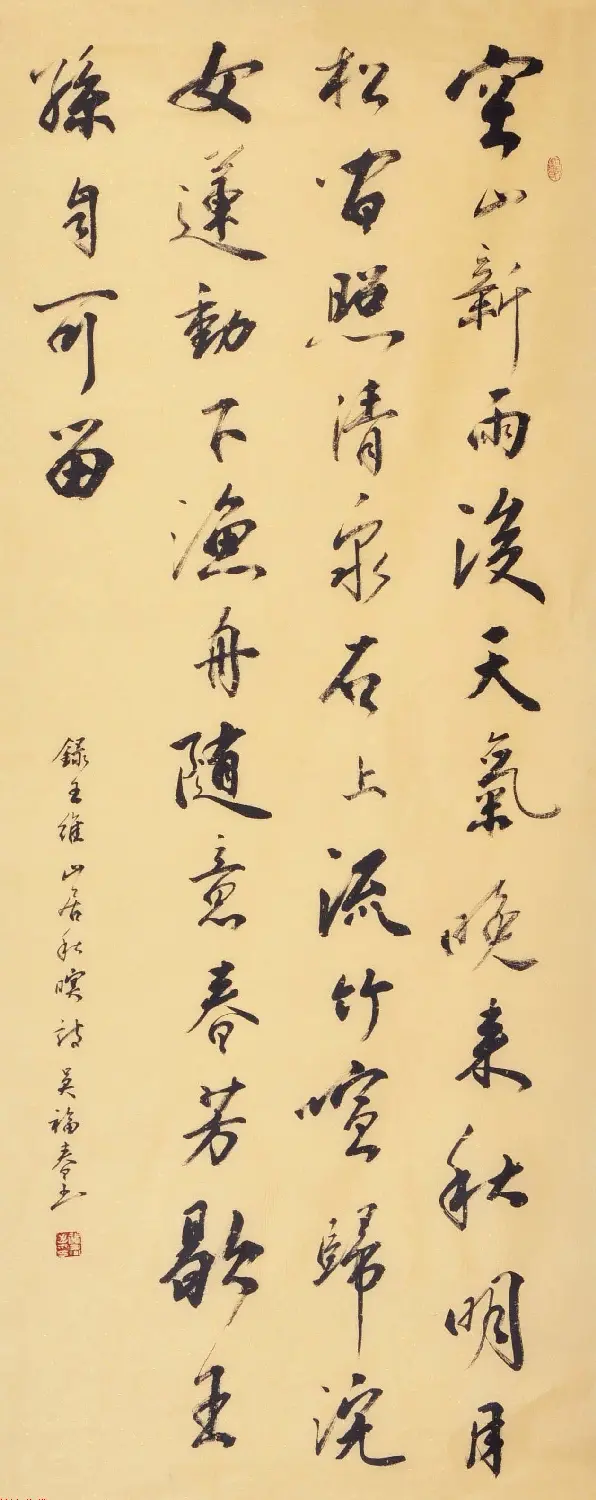 空山新雨後天氣晚来秋明月
松間照清泉石上流竹喧歸浣
女蓮動下漁舟随意春芳歇王
孫自可留
録王維山居秋暝詩吴福春書